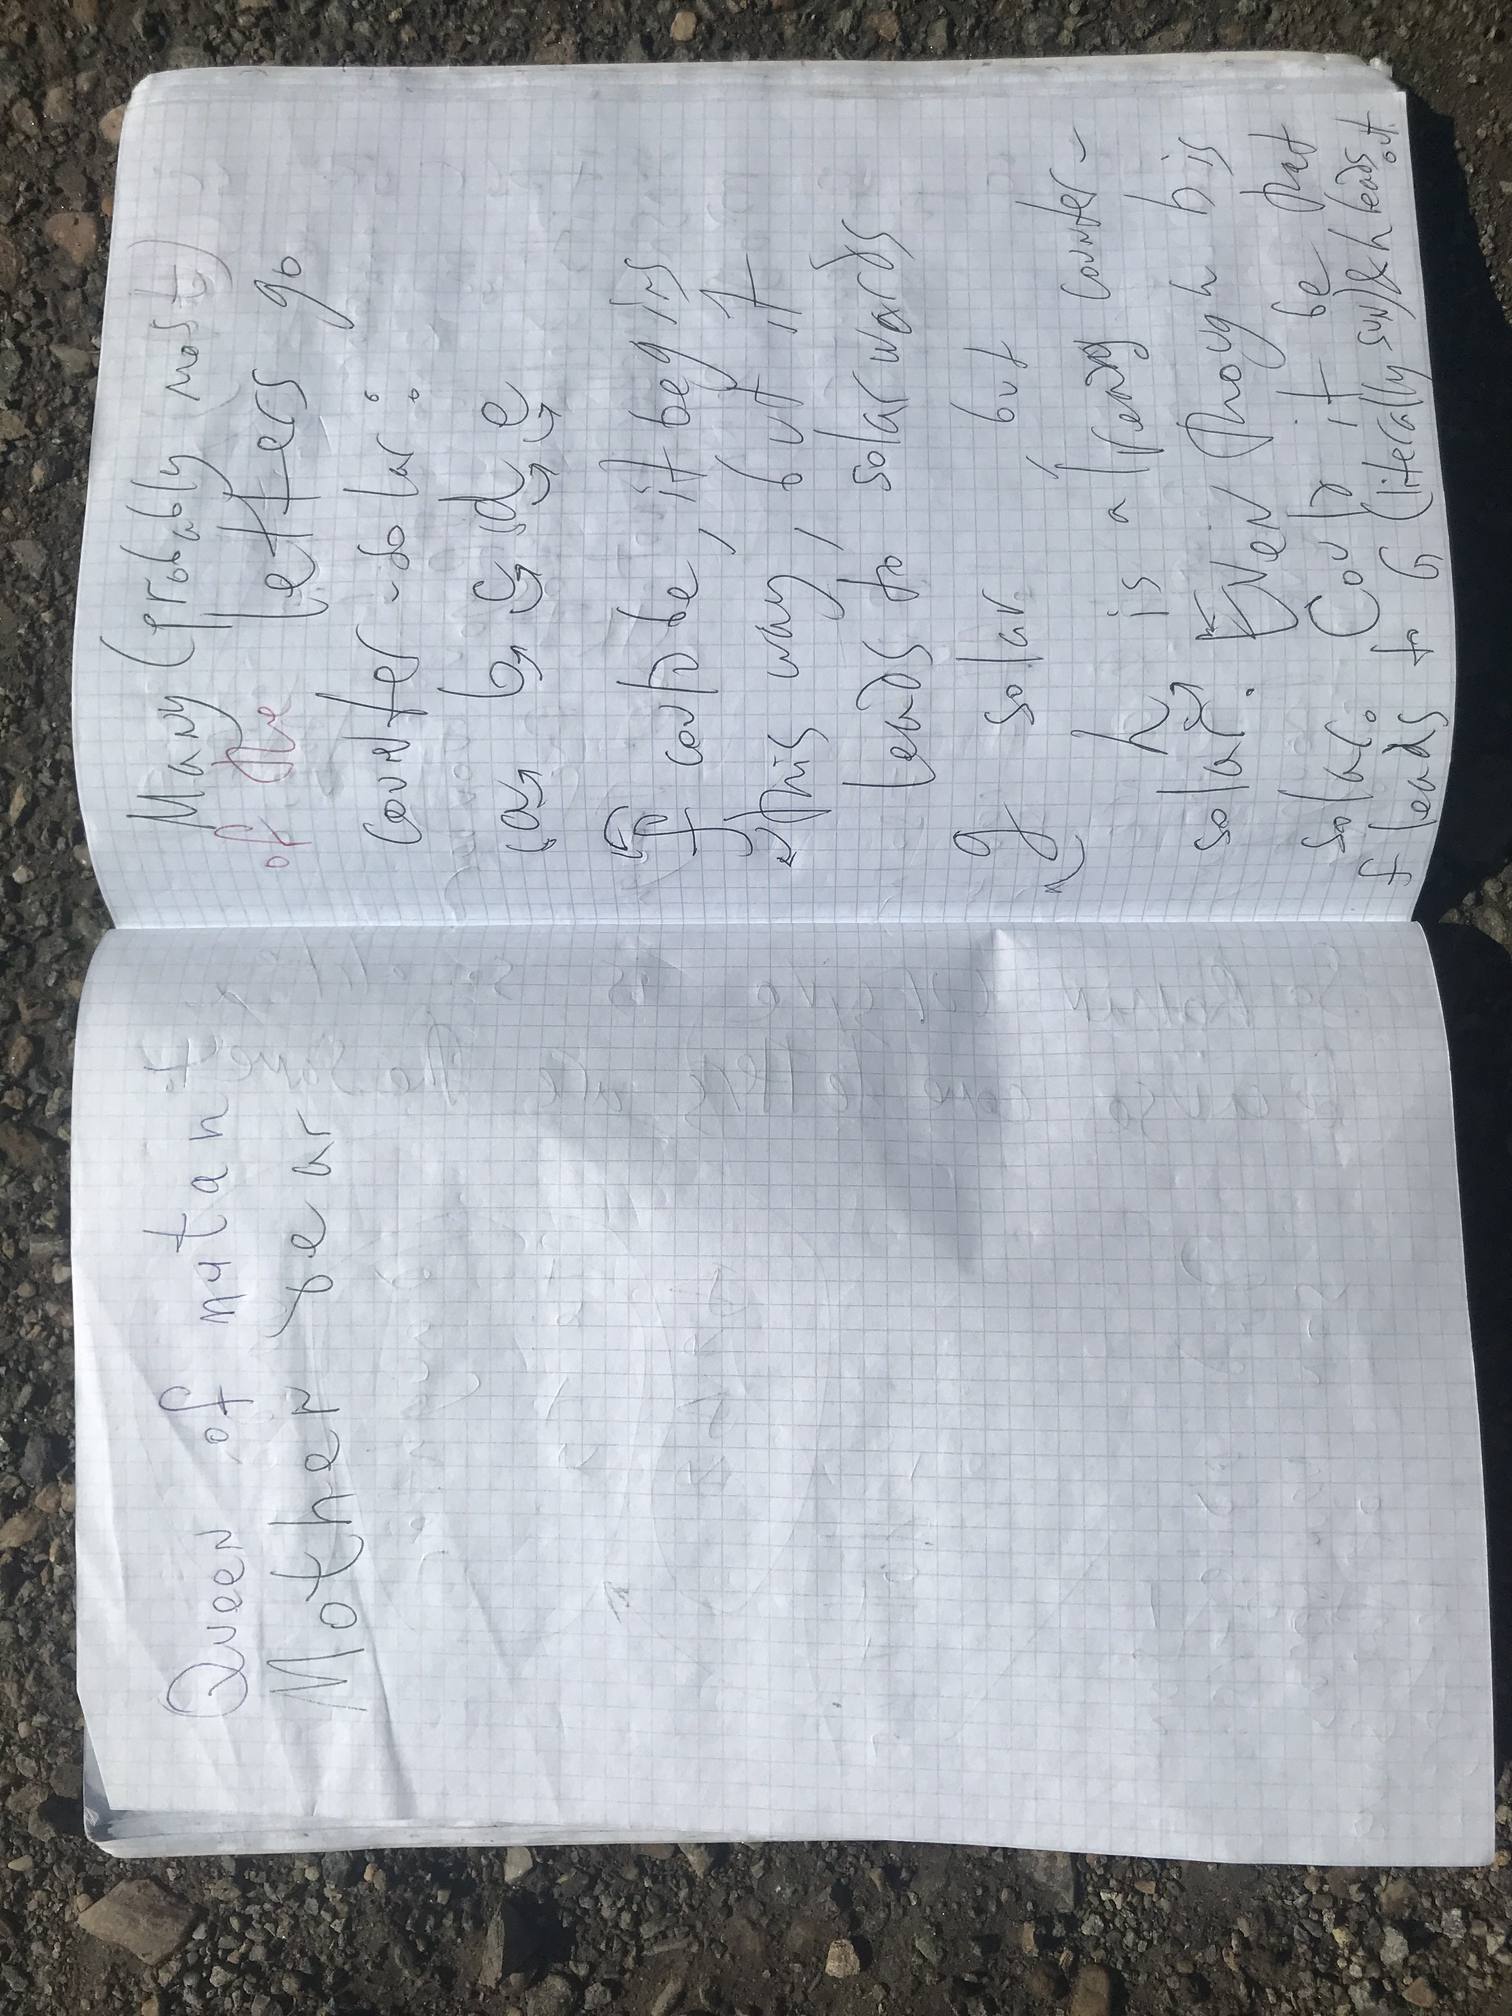 Queen of mutant
Mother bear
Many (probably most)
of the letters go
counter-solar:
(a b c d e
f could be, it begins
this way, but it
leads to solarwards
g solar but
h is already counter-
solar. Even though b is
solar. Could it be that
f leads to G (literally sun) & h leads
out.